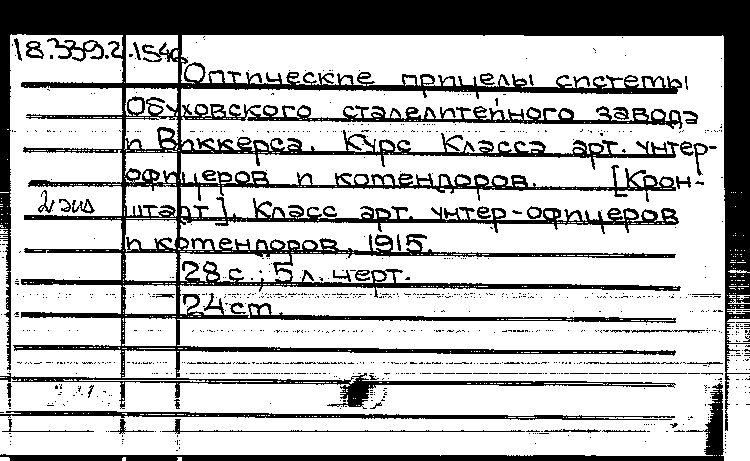 18.339.2.154б
Оптические прицелы системы
Обуховского сталелитейного завода
и Виккерса. Курс Класса арт. унтер-
офицеров и комендоров. [Крон-
2 экз штадт]. Класс арт. унтер-офицеров
и комендоров, 1915.
28 с.; 5 л. черт.
24 cm.